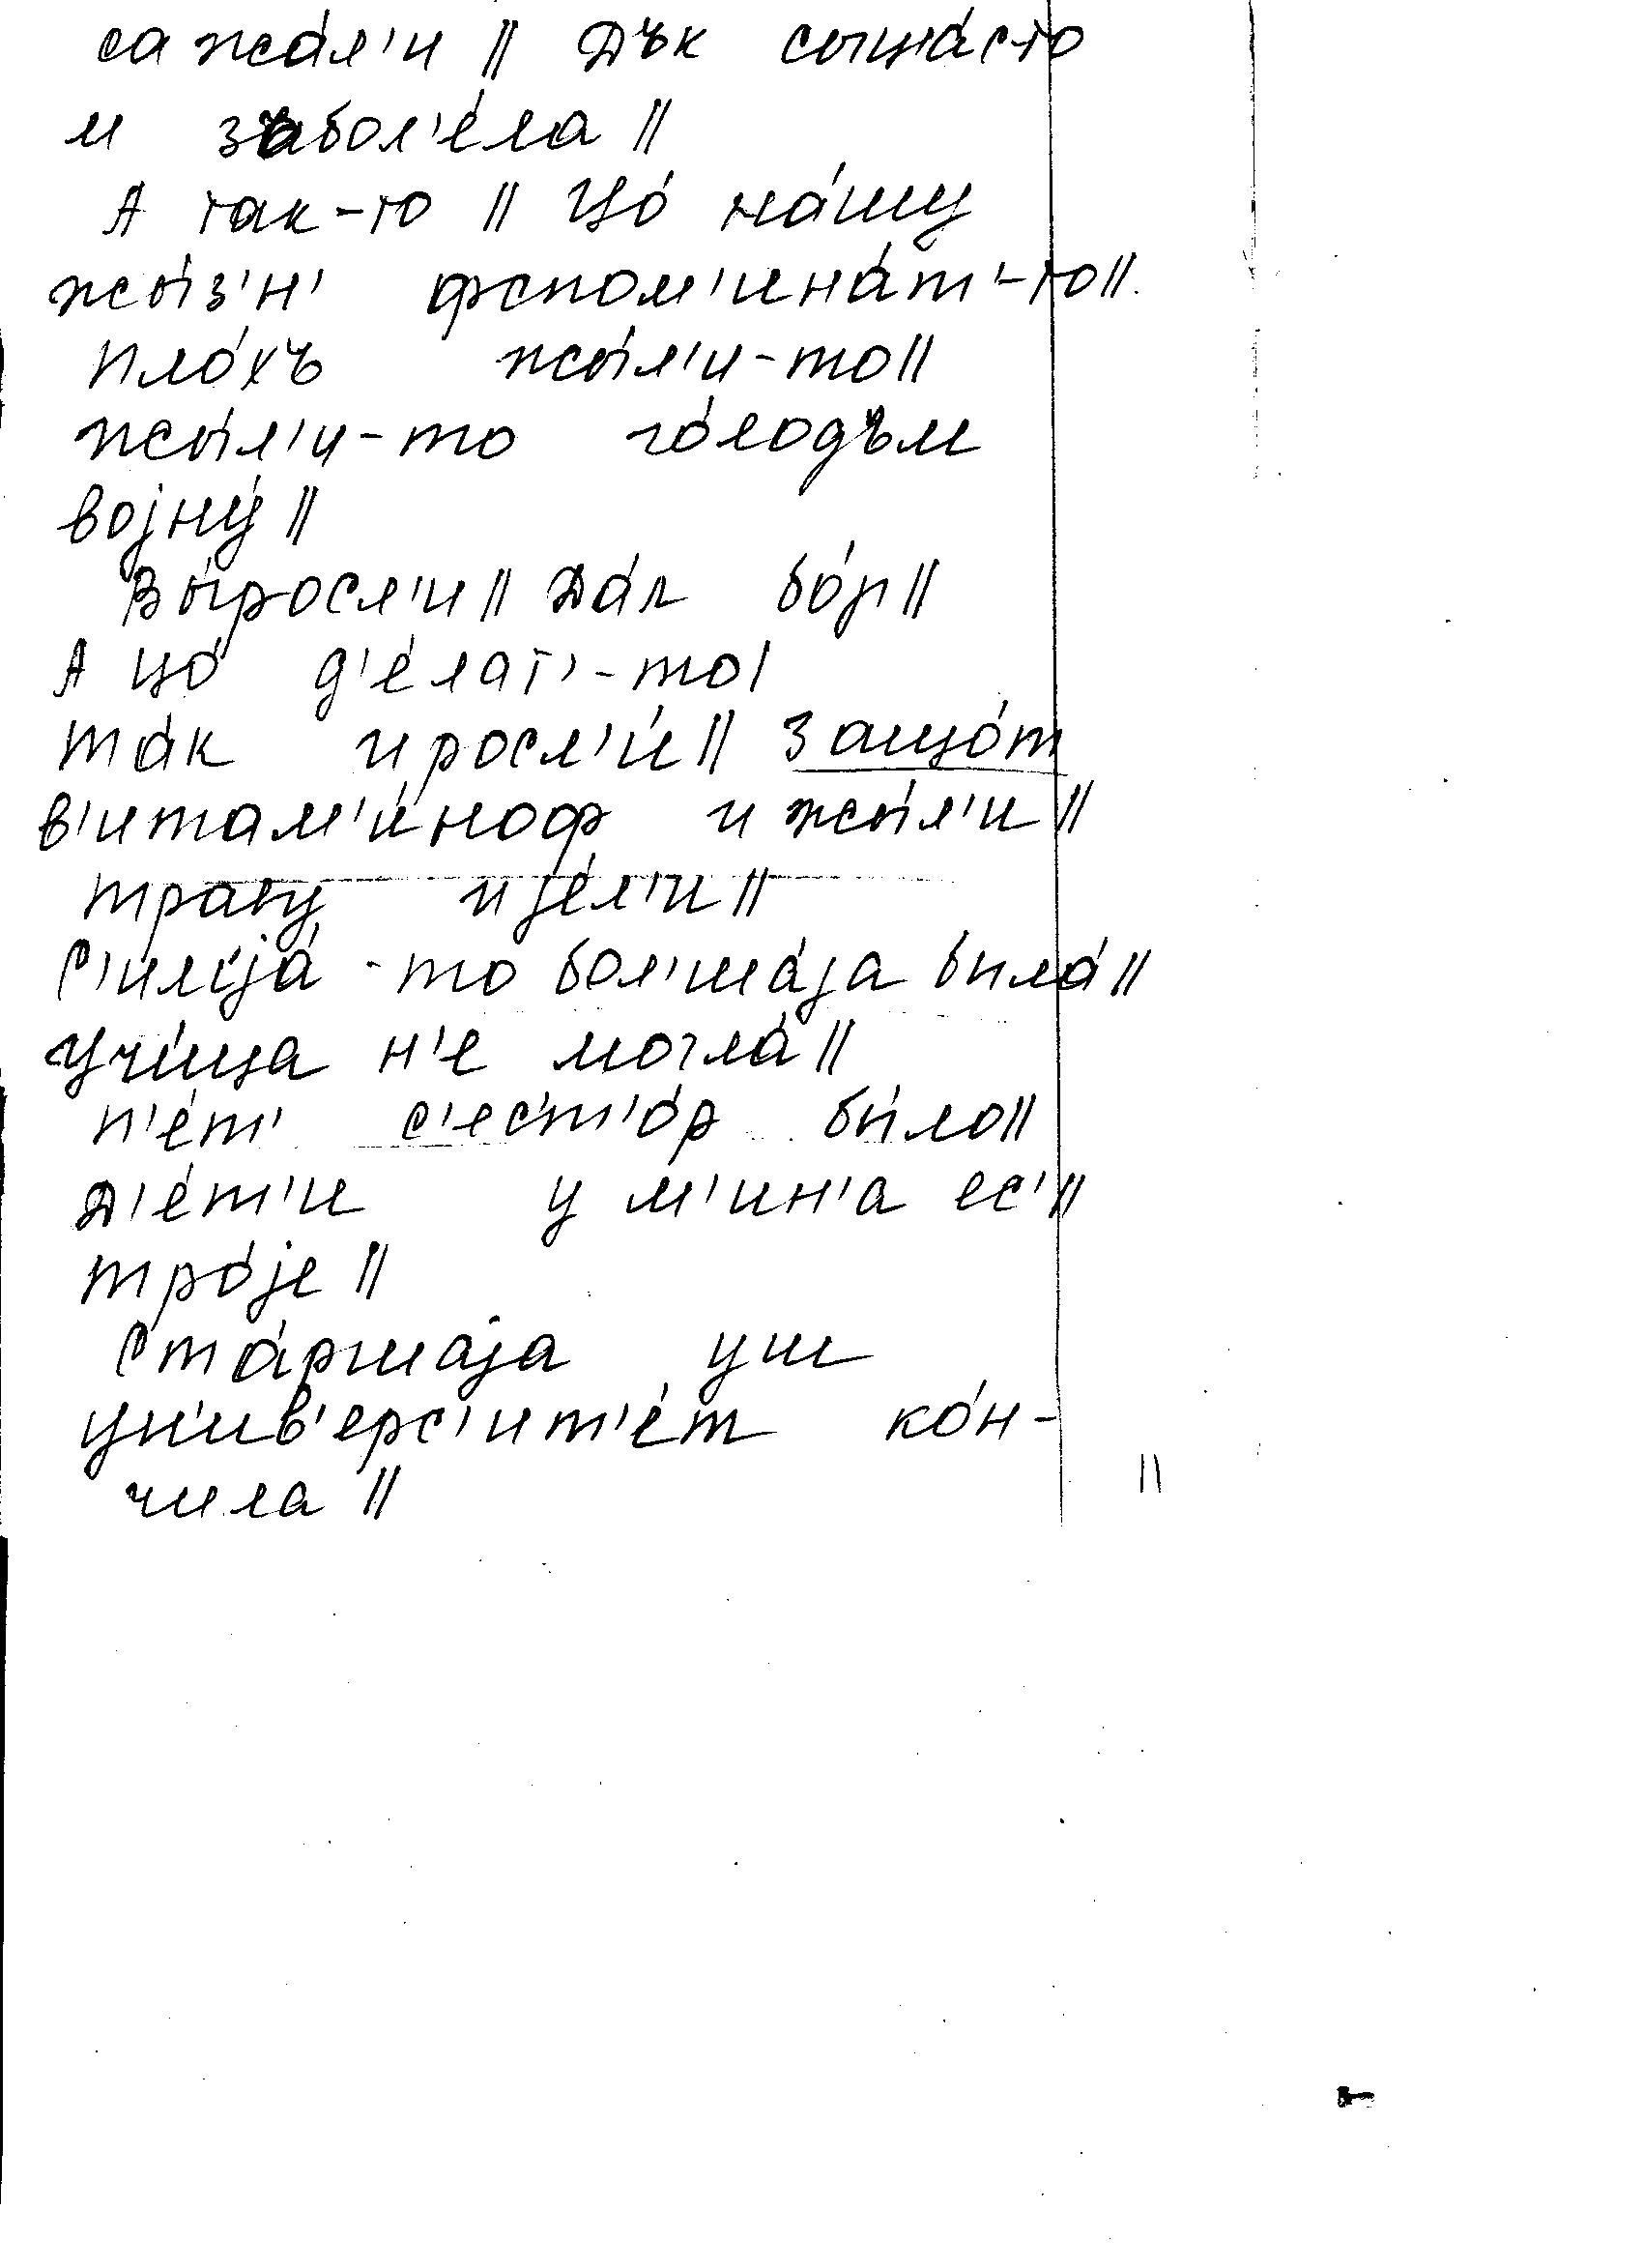 сажа́л'и || Дък сыща́сто
и забол'е́ла ||
А так-то || Цо́ на́шу
жы́з'н' фспом'ина́т'-то ||
пло́хъ жы́л'и-то ||
жы́л'и-то го́лодъм
војну́ ||
Вы́росл'и || Да́л бо́г ||
А цо́ д'е́лат'-то |
та́к и росл'и́ || защо́т
в'итам'и́ноф и жы́л'и ||
траву и је́л'и ||
с'им'ја́-то бол'ша́ја была́ ||
учи́ца н'е могла́ ||
п'е́т' с'ест'о́р бы́ло ||
Д'е́т'и у м'ин'а ес' ||
тро́је ||
Ста́ршаја уш
ун'ив'ерс'ит'е́т ко́н-
чила ||